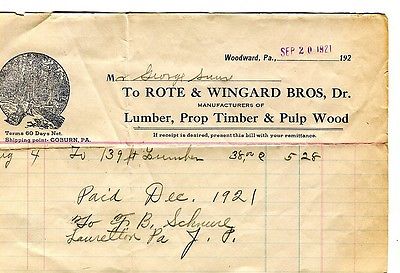 Woodward, Pa., SEP 20 1921 192
Mr George
To ROTE & WINGARD BROS, Dr.
MANUFACTURERS OF
Lumber, Prop Timber & Pulp Wood
If receipt is desired, present this bill with your remittance.
Terms 60 Days Net.
Shipping point- COBURN, PA.
Aug 4 To 139 ft Lumber 38,00 5 28
Paid Dec. 1921
To B. Schnure
Laurelton Pa J. P.